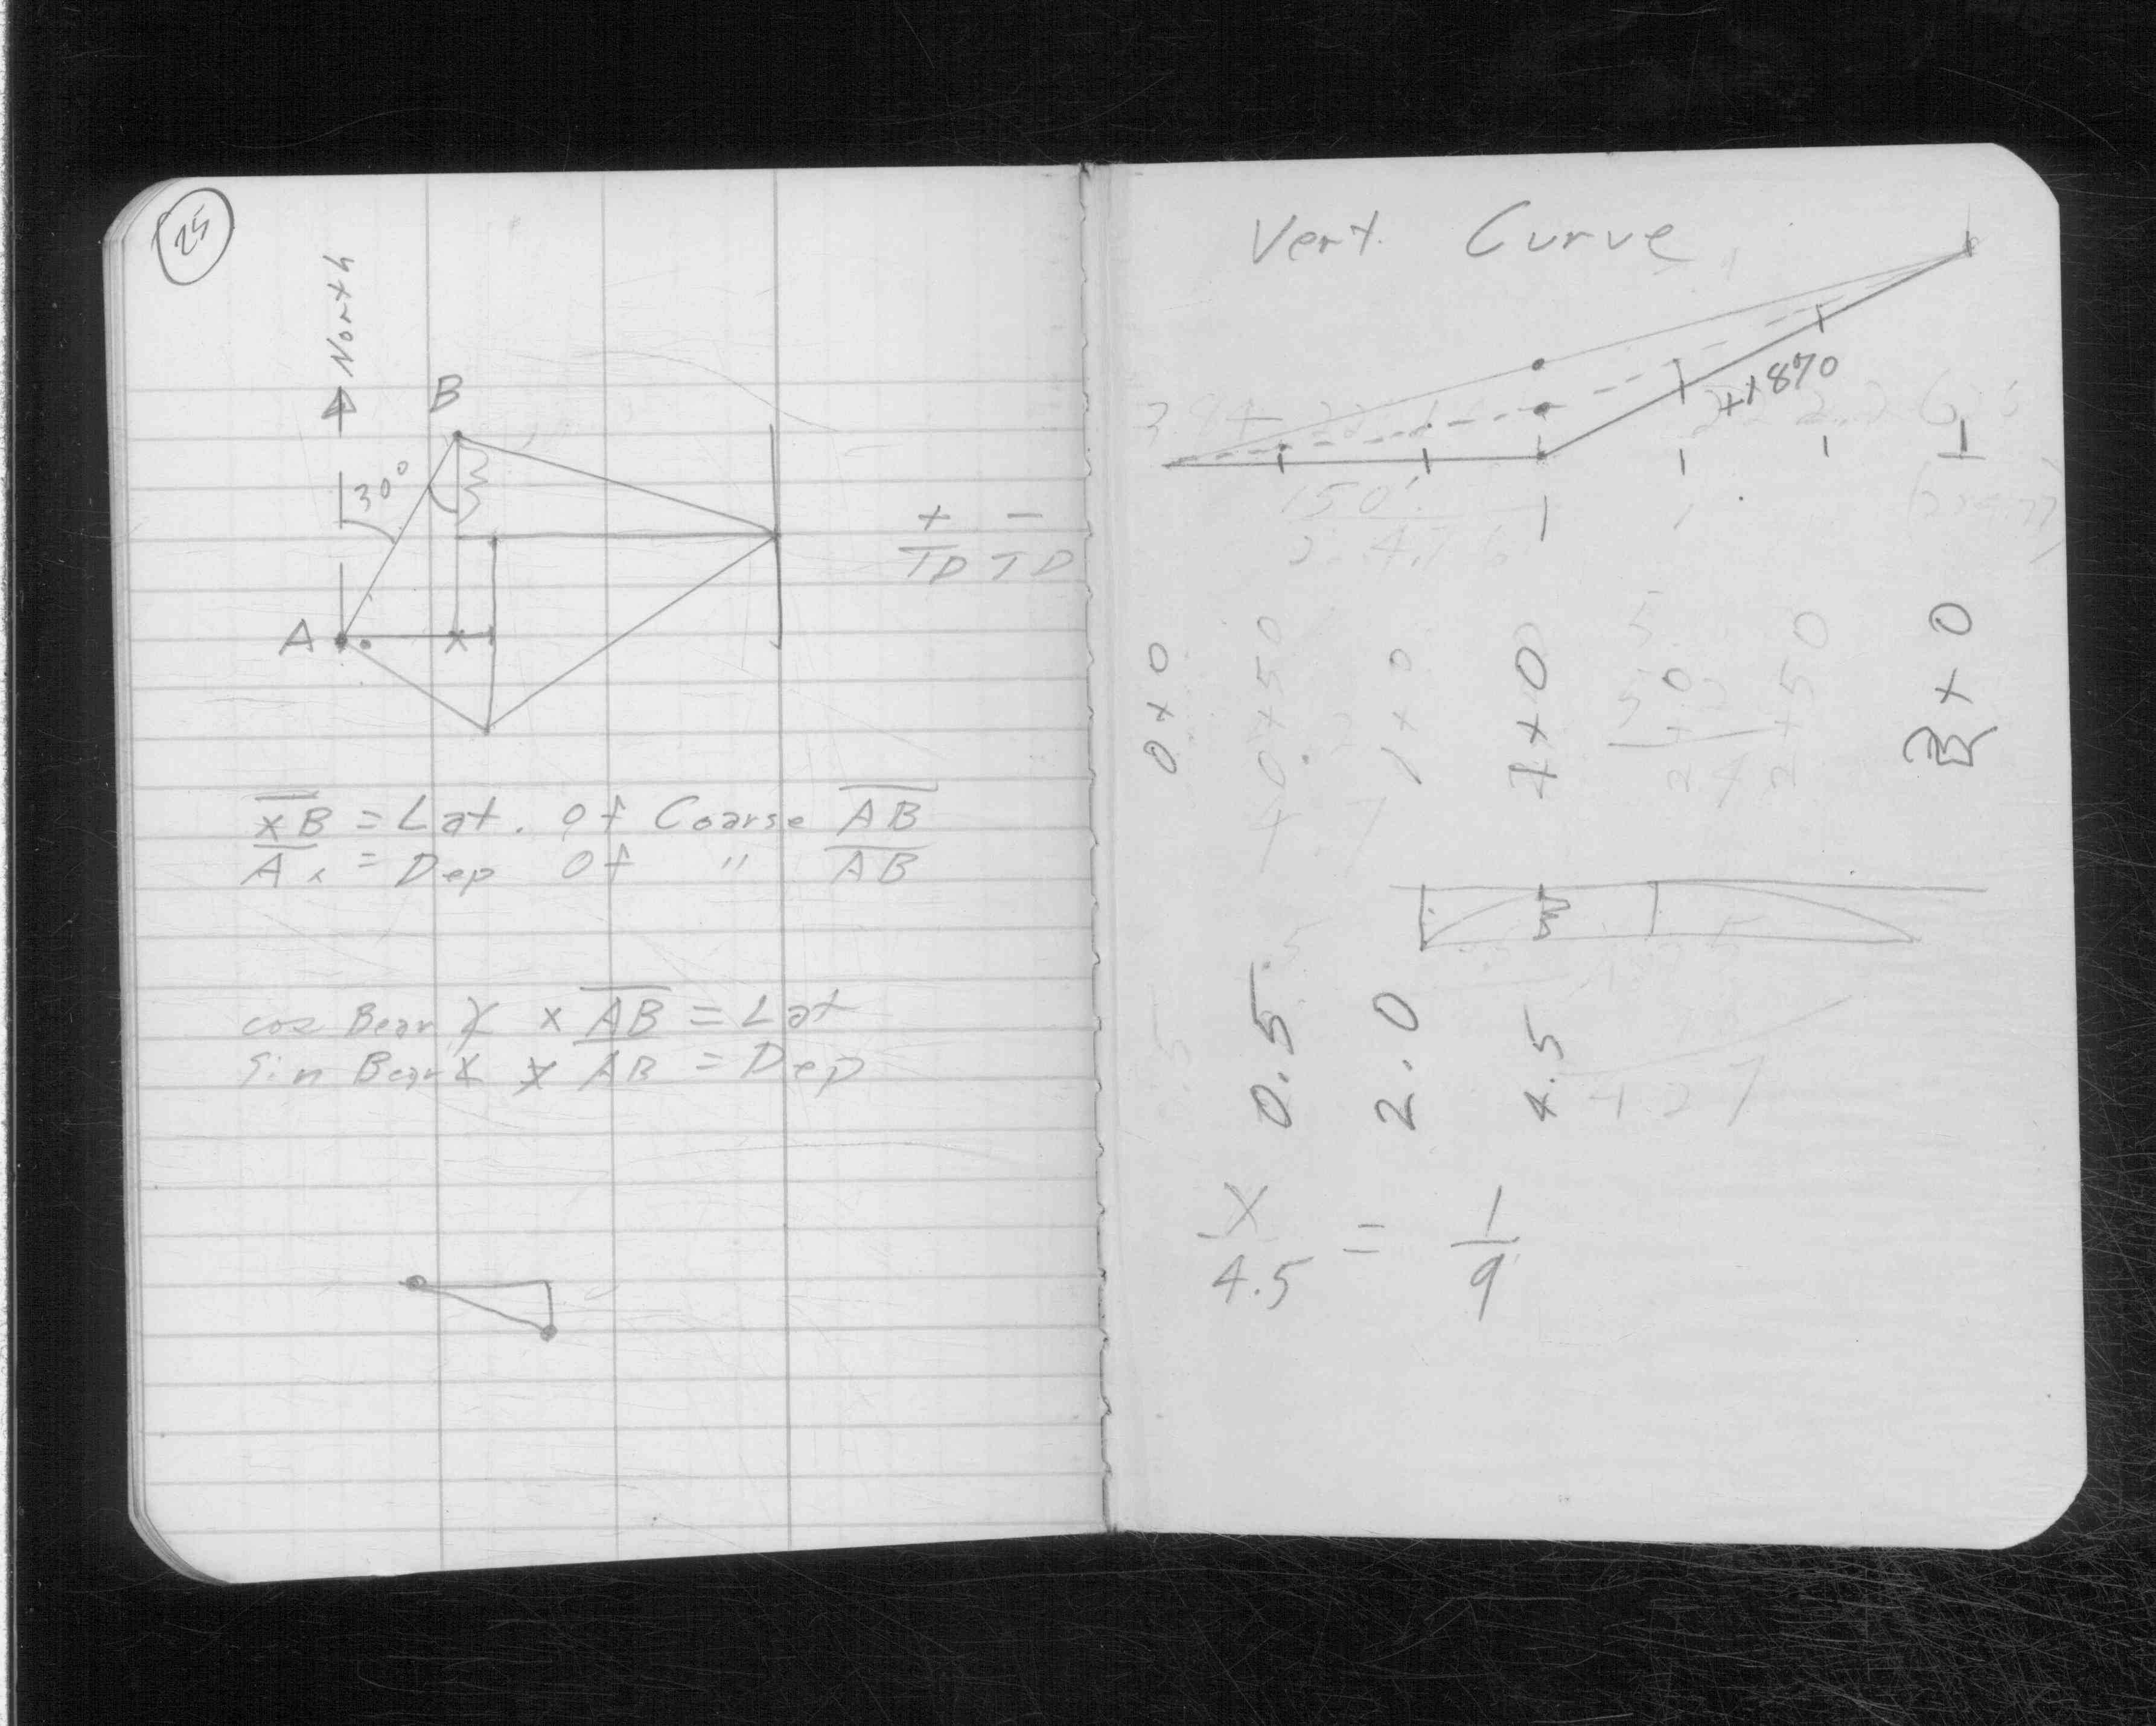 25
North
B
30°
A
x
+ -
TD TD
xB = Lat. of Coarse AB
Ax = Dep of " AB
cos Bear ∡ x AB = Lat
Sin Bear ∡ x AB = Dep
Vert. Curve
150'
0+0
0+50
1+0
2+50
3+0
0.5
2.0
4.5
X/4.5 = 1/9